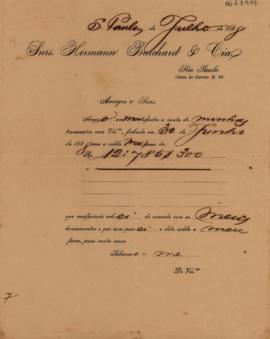 S Paulo, de Julho de 188
Snrs. Hermann Burchard & Cia
São Paulo
Caixa do Correio N.
Amigos e Snrs.
a conta de minhas
transacções com Vas, fechada em 30 de Junho
de 188 e saldo favor de
Rs 12:786$300
que conferindo achei de accordo com os meus
lançamentos e por isso passei o dito saldo a meu
favor, para conta nova
Subscrevo-me
De Vas
7